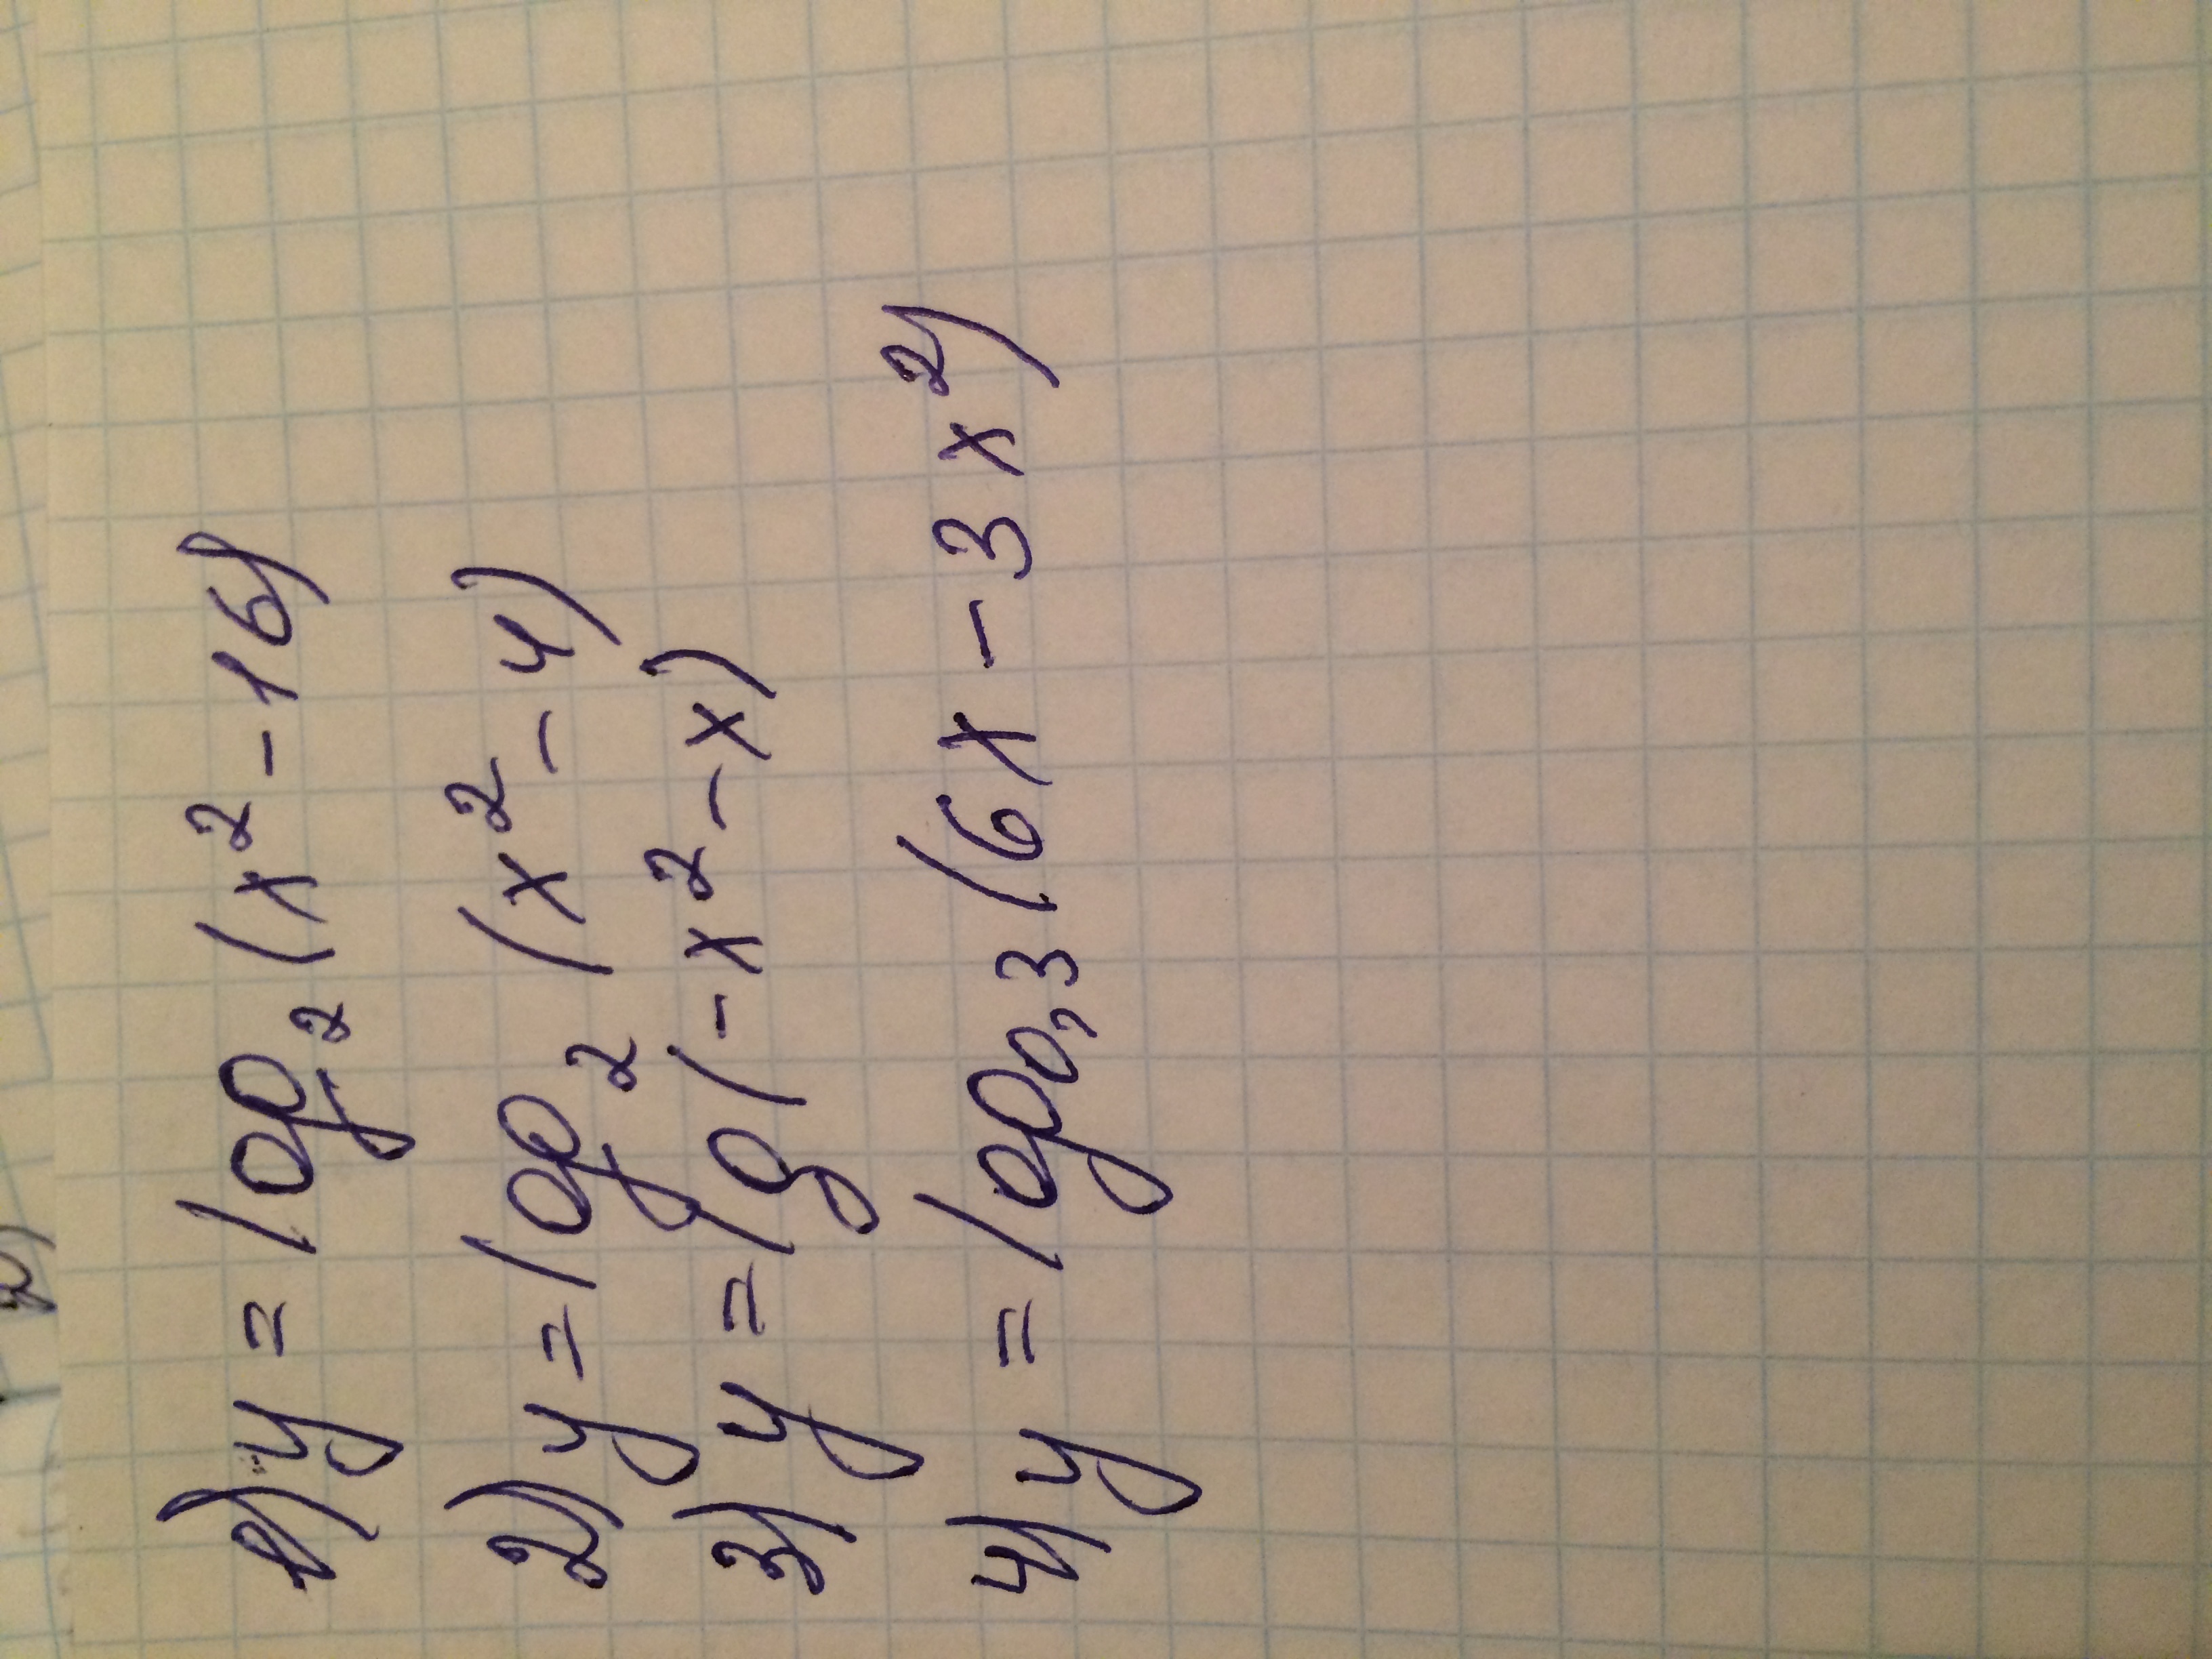 1) y = log₂ (x² - 16)
2) y = log₂ (x² - 4)
3) y = lg (-x² - x)
4) y = log₀,₃ (6x - 3x²)